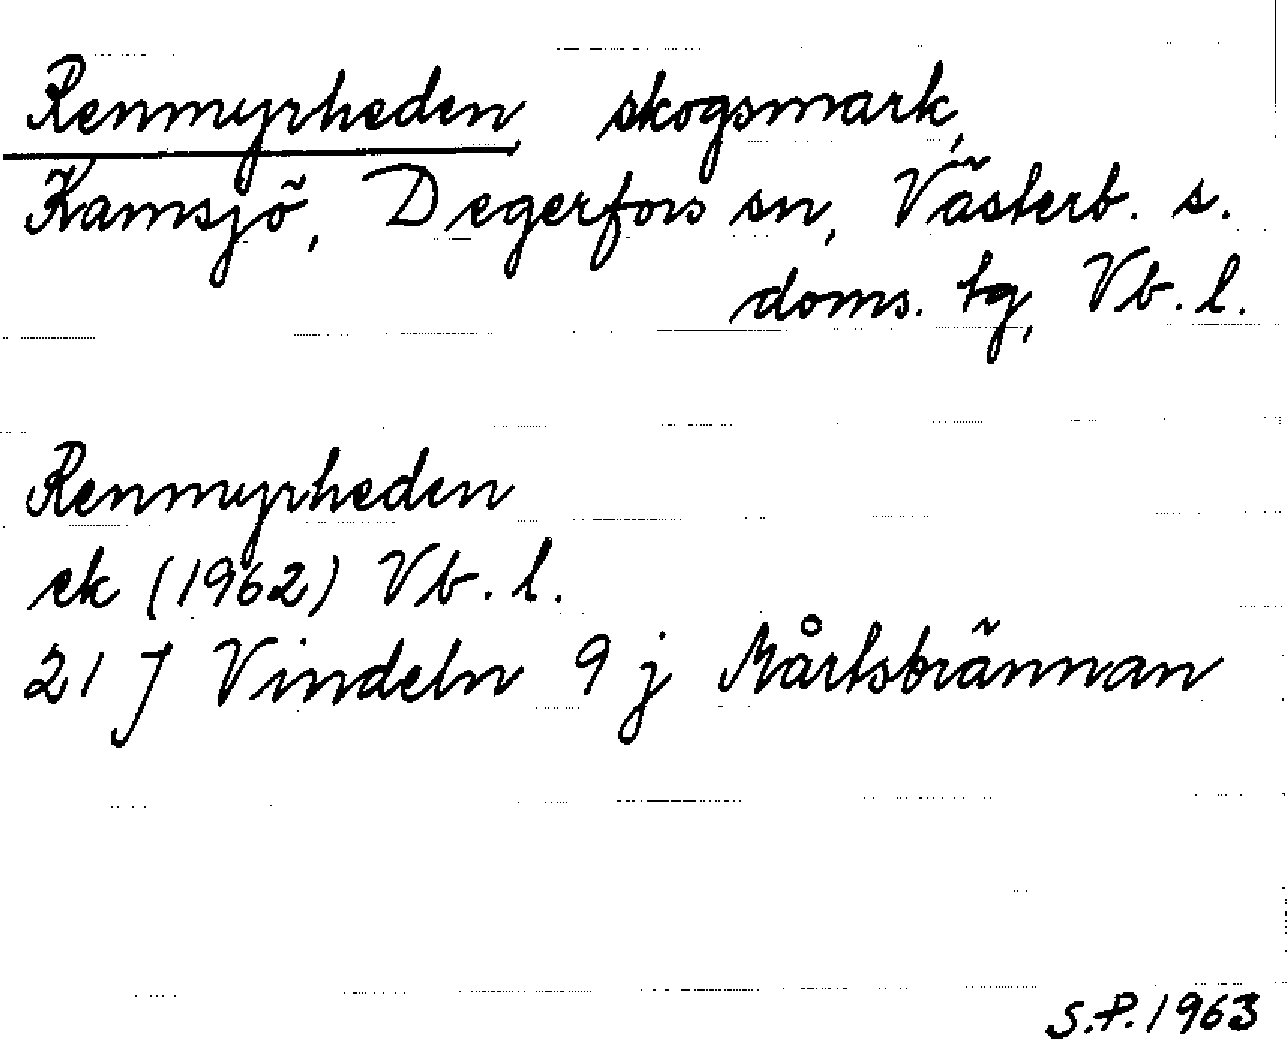 Renmyrheden, skogsmark,
Kamsjö, Degerfors sn, Västerb. s.
doms. tg, Vb. l.
Renmyrheden
ek (1962) Vb. l.
21 J Vindeln 9 j Mårtsbrännan
S.P. 1963